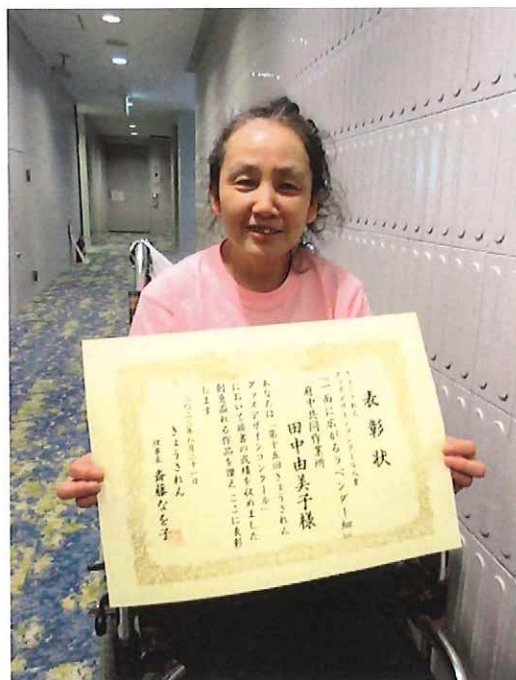 表彰状
グッズデザインコンクール入賞
「一面に広がるラベンダー畑」
府中共同作業所
田中由美子様
あなたは「第十五回きょうされん
グッズデザインコンクール」
において頭書の成績を収めました
創意溢れる作品を讃え ここに表彰
します
きょうされん
理事長 斎藤なを子